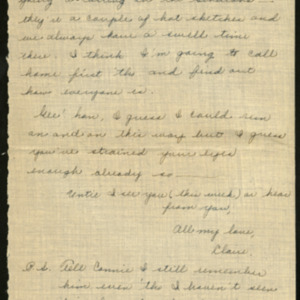 they're a couple of hot sketches and
we always have a swell time
there. I think I'm going to call
home first tho and find out
how everyone is.
Gee' hon, I guess I could run
on and on this way but I guess
you've strained your eyes
enough already so —
Until I see you (this week) or hear
from you,
All my love,
Claire.
P.S. Tell Connie I still remember
him even tho I haven't seen